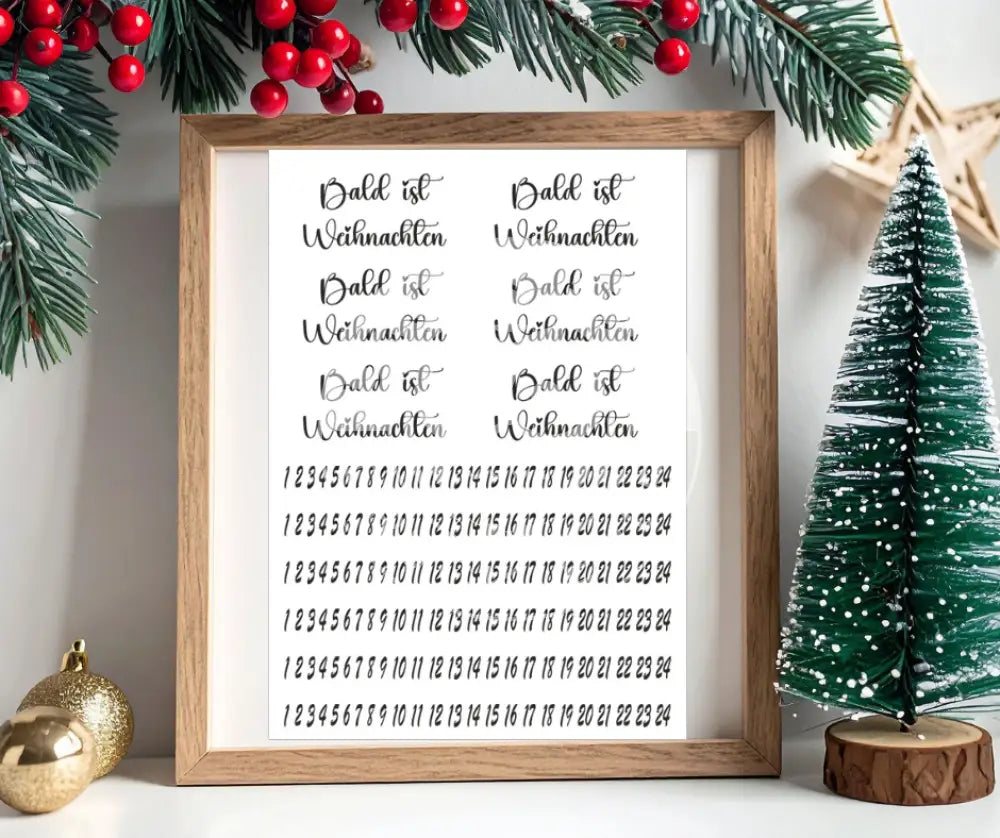 Bald ist Bald ist
Weihnachten Weihnachten
Bald ist Bald ist
Weihnachten Weihnachten
Bald ist Bald ist
Weihnachten Weihnachten
1 2 3 4 5 6 7 8 9 10 11 12 13 14 15 16 17 18 19 20 21 22 23 24
1 2 3 4 5 6 7 8 9 10 11 12 13 14 15 16 17 18 19 20 21 22 23 24
1 2 3 4 5 6 7 8 9 10 11 12 13 14 15 16 17 18 19 20 21 22 23 24
1 2 3 4 5 6 7 8 9 10 11 12 13 14 15 16 17 18 19 20 21 22 23 24
1 2 3 4 5 6 7 8 9 10 11 12 13 14 15 16 17 18 19 20 21 22 23 24
1 2 3 4 5 6 7 8 9 10 11 12 13 14 15 16 17 18 19 20 21 22 23 24